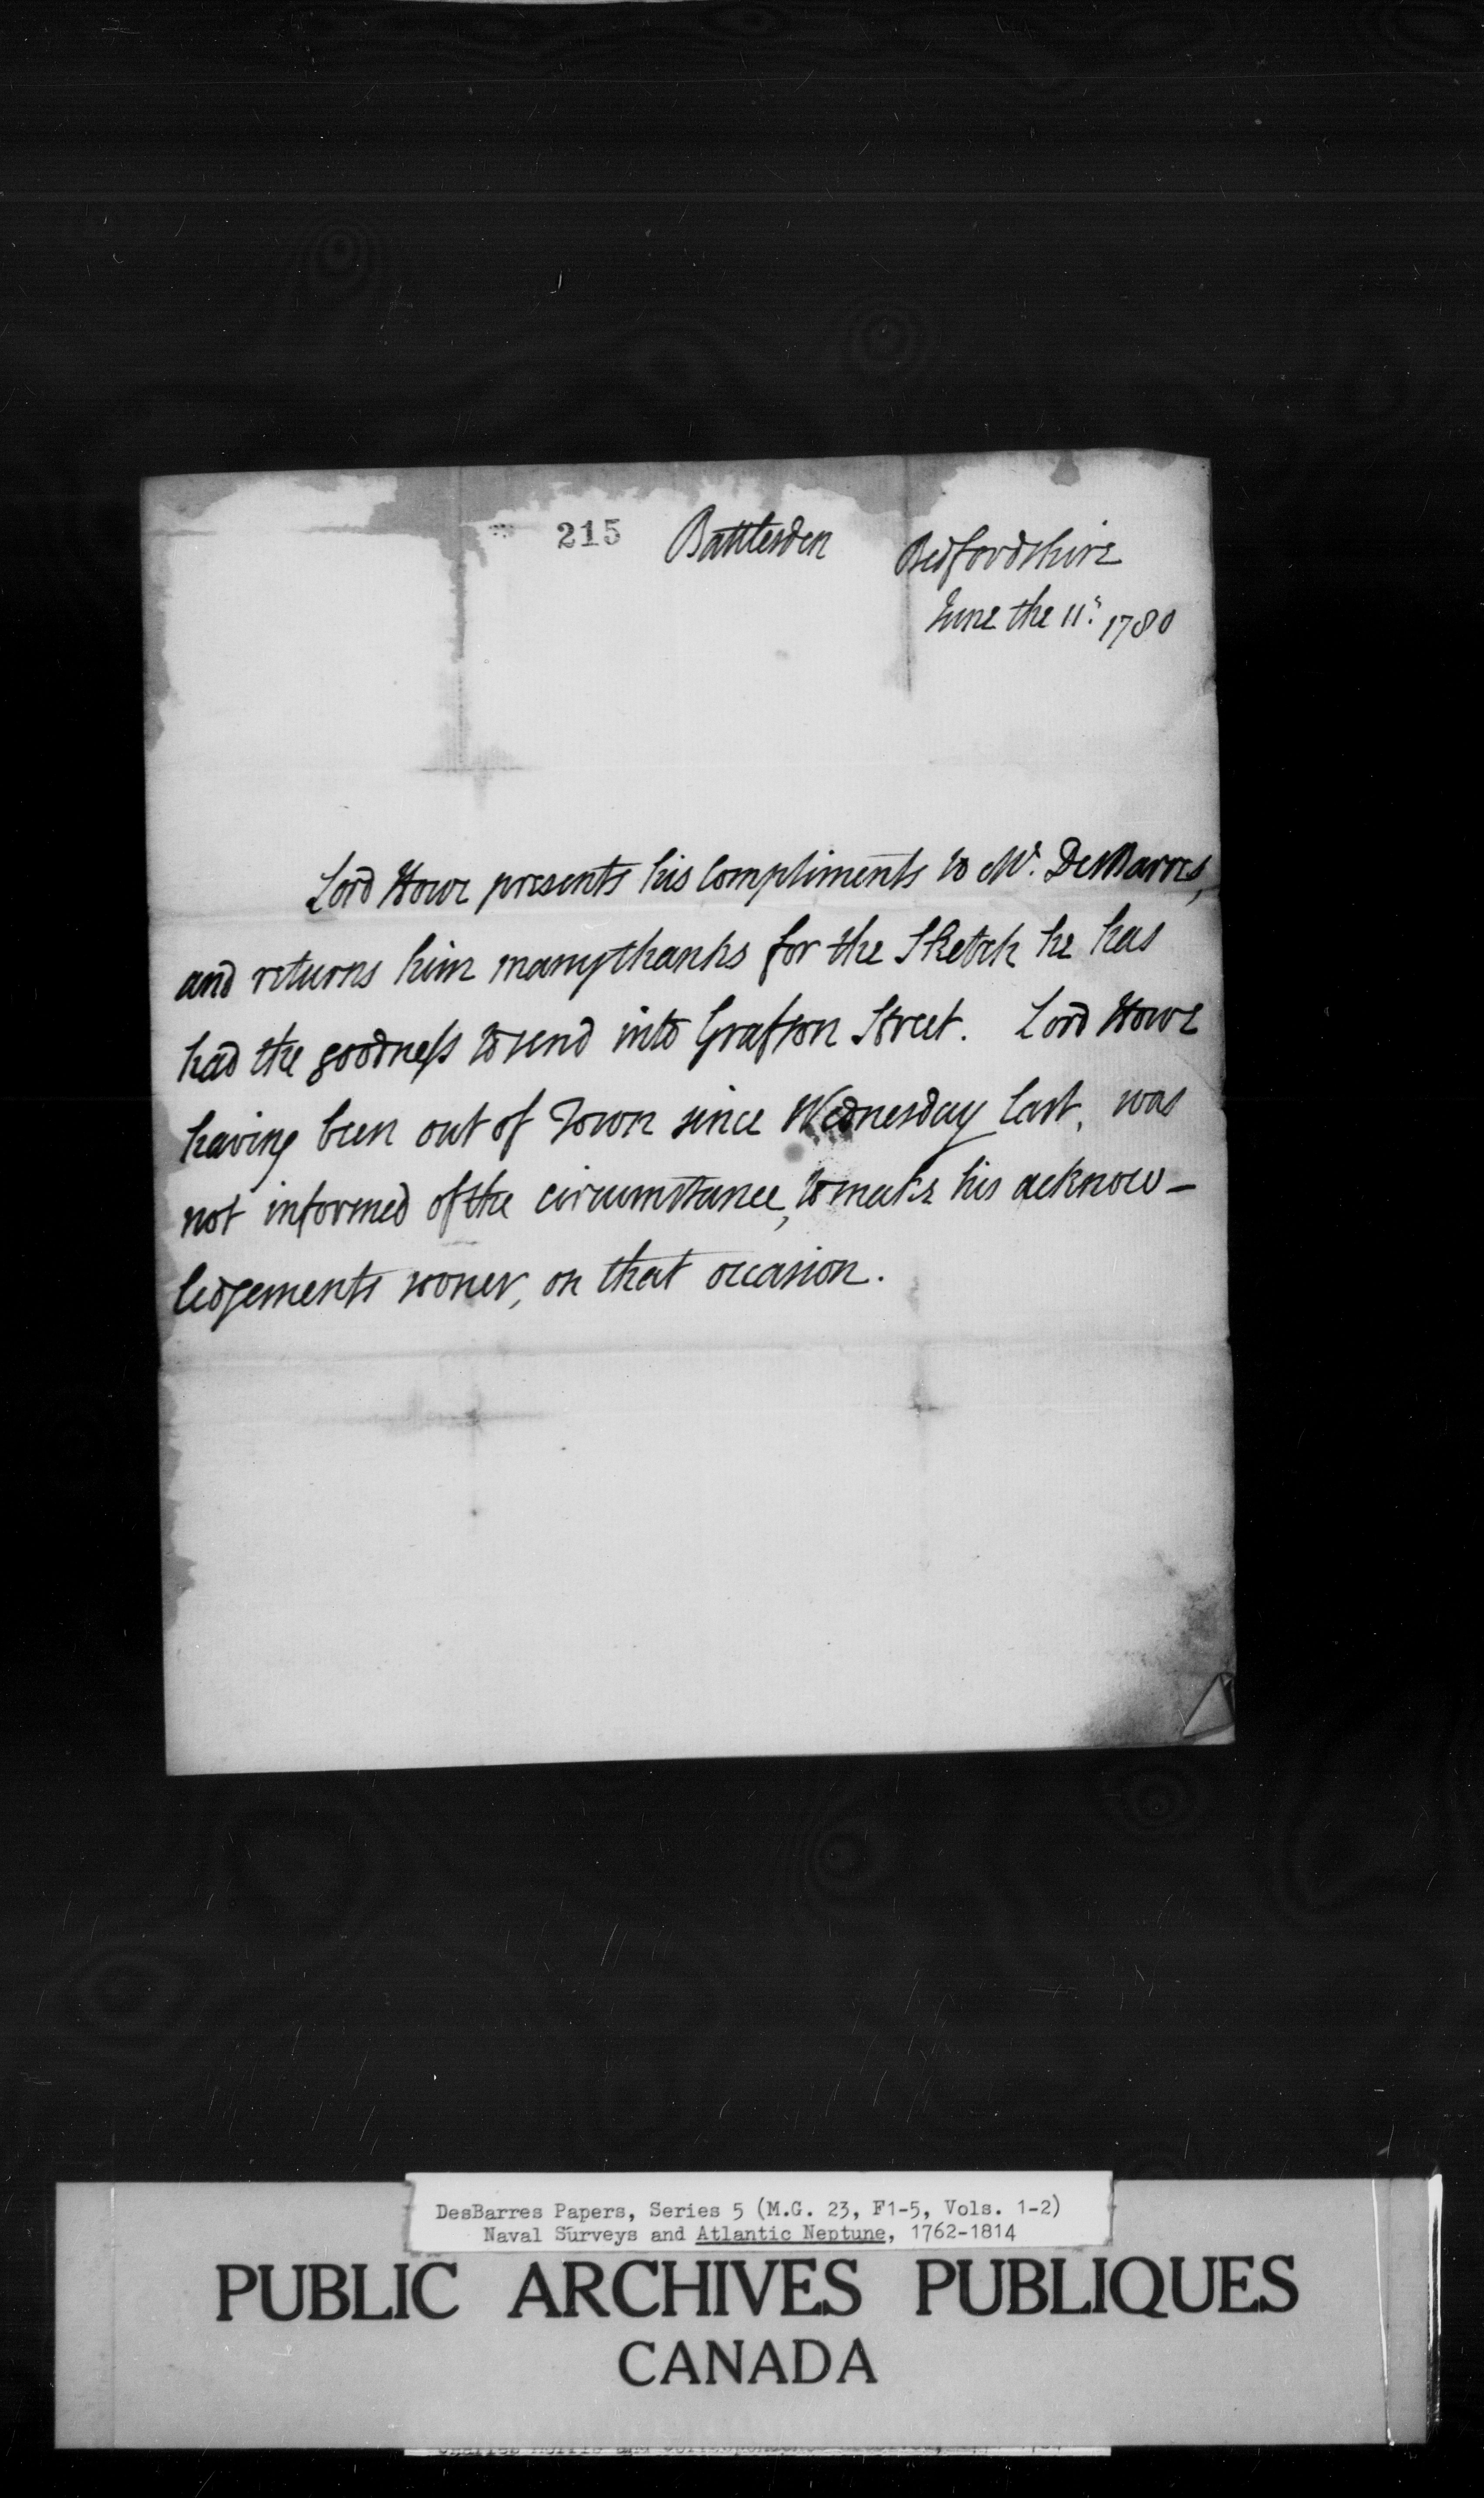 215 Battlesden Bedfordshire
June the 11.s 1780
Lord Howe presents his Compliments to Mr. DesBarres,
and returns him many thanks for the Sketch he has
had the goodness to send into Grafton Street. Lord Howe
having been out of Town since Wednesday last, was
not informed of the circumstance, to make his acknow-
ledgements sooner, on that occasion.
DesBarres Papers, Series 5 (M.G. 23, F1-5, Vols. 1-2)
Naval Surveys and Atlantic Neptune, 1762-1814
PUBLIC ARCHIVES PUBLIQUES
CANADA